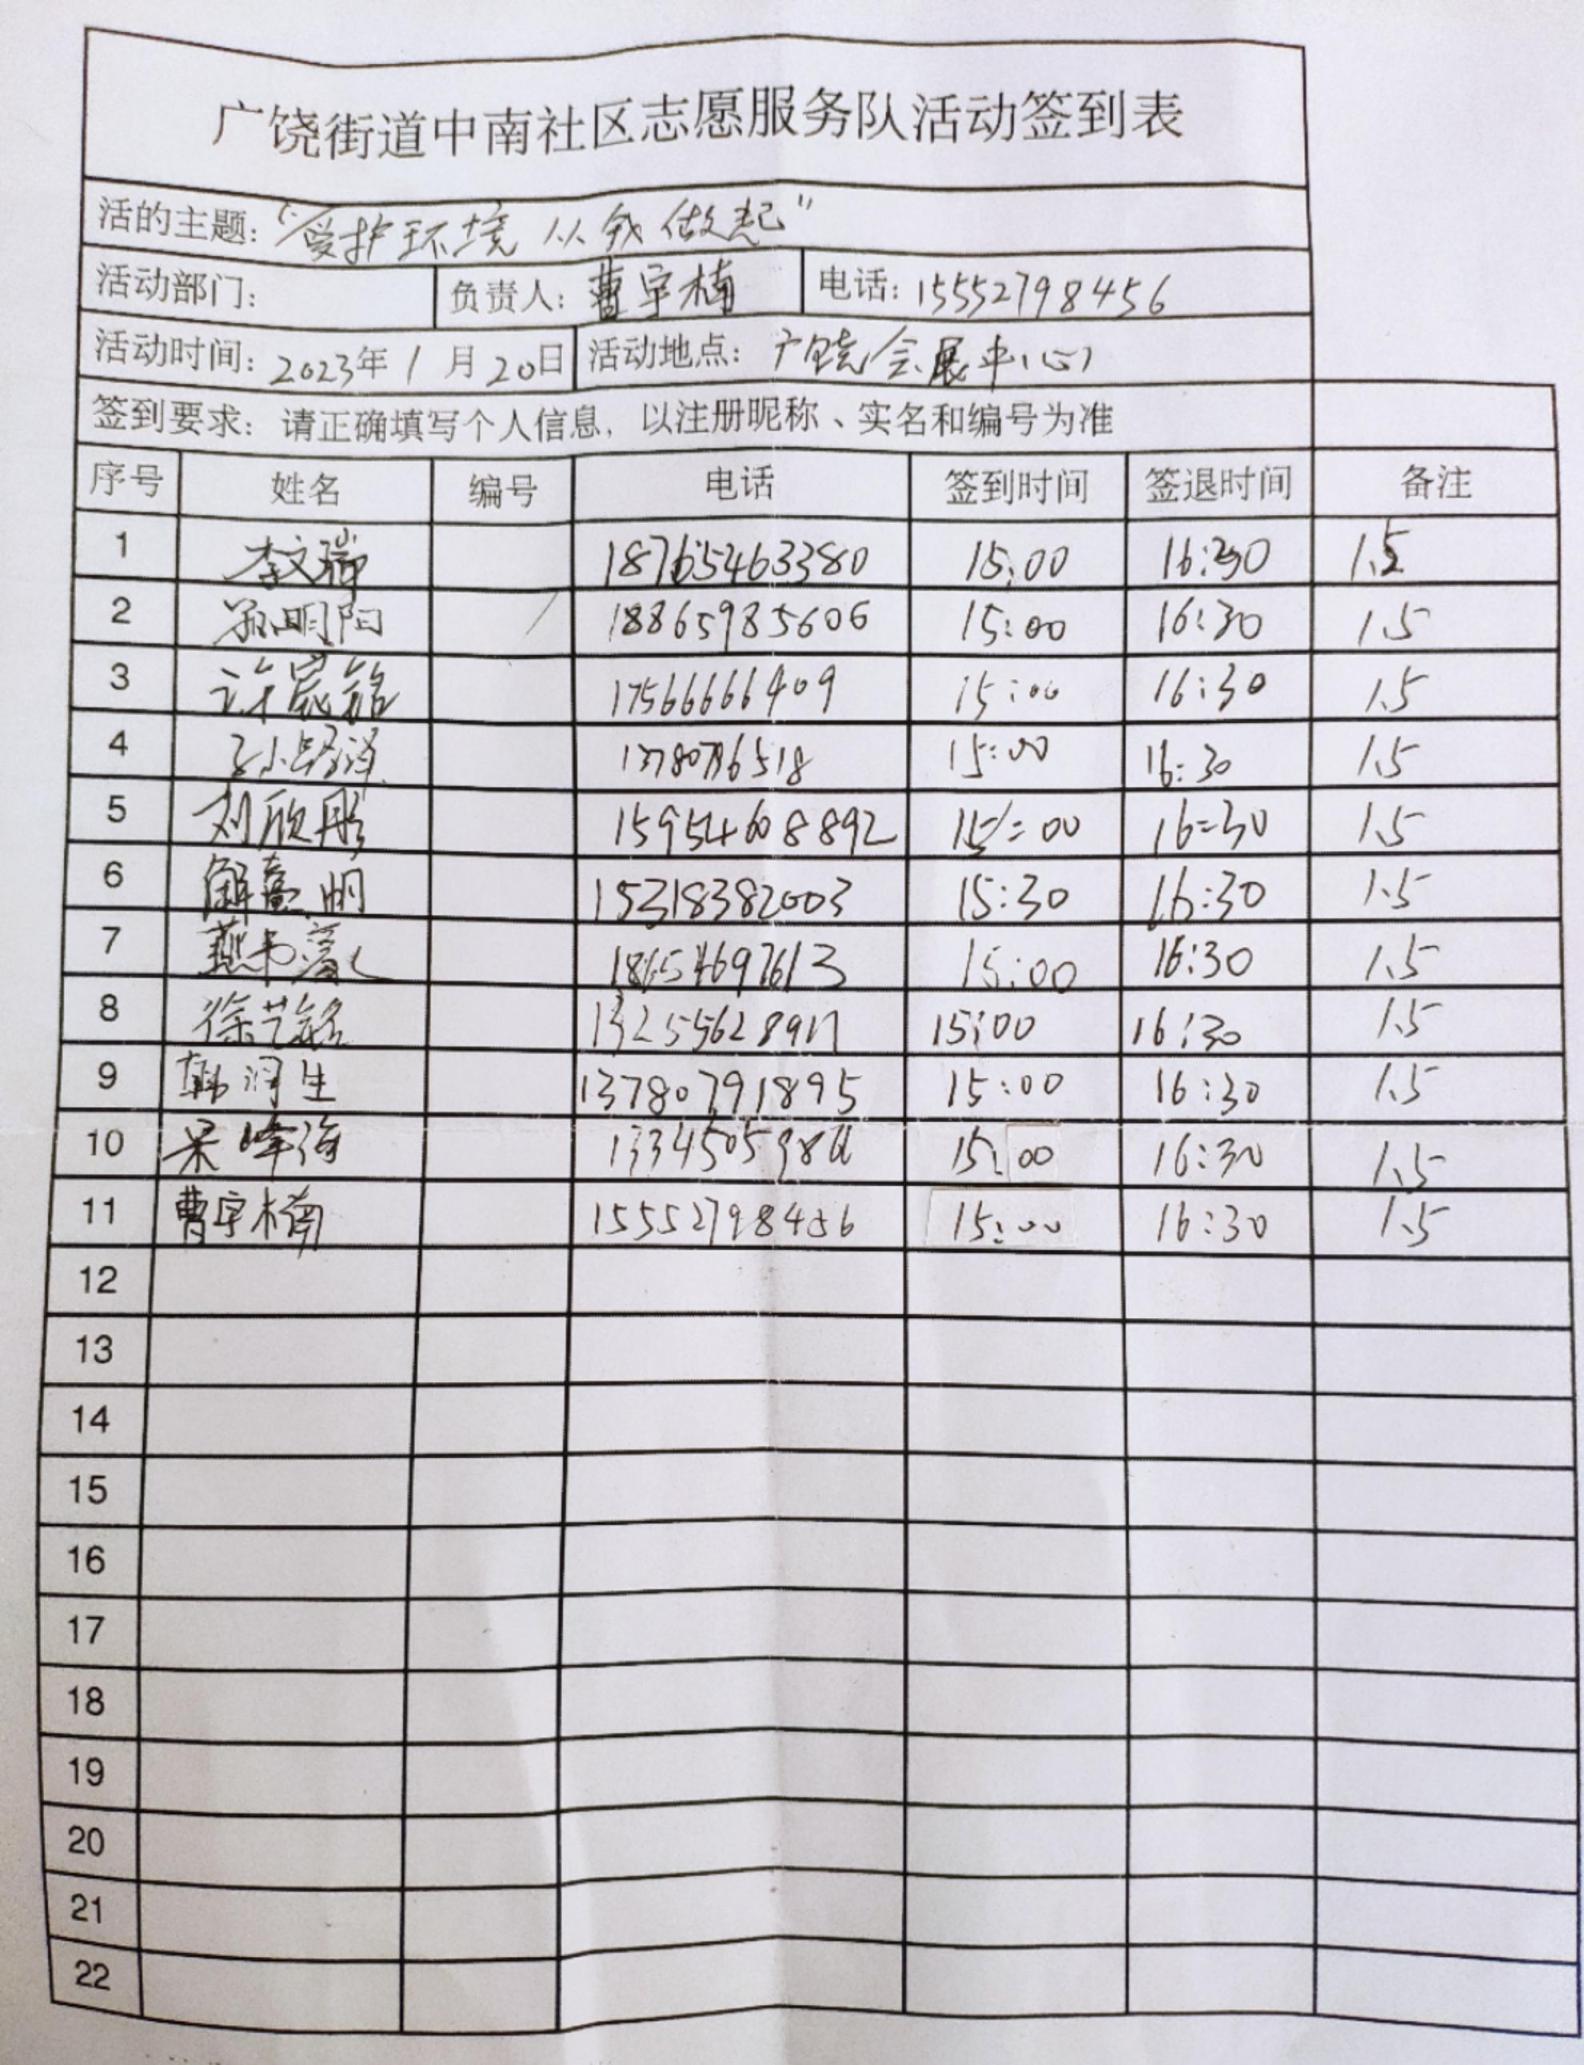 广饶街道中南社区志愿服务队活动签到表
活的主题：“爱护环境 从我做起”
活动部门： 负责人：曹宇楠 电话：15552798456
活动时间：2023年1月20日 活动地点：广饶会展中心
签到要求：请正确填写个人信息，以注册昵称、实名和编号为准
序号 姓名 编号 电话 签到时间 签退时间 备注
1 李文瑞 18765463380 15:00 16:30 1.5
2 孙明阳 18865985606 15:00 16:30 1.5
3 许宸铭 17566666409 15:00 16:30 1.5
4 15:00 16:30 1.5
5 刘欣彤 15954608892 15:00 16:30 1.5
6 15318382003 15:30 16:30 1.5
7 18654697613 15:00 16:30 1.5
8 徐艺铭 15:00 16:30 1.5
9 韩润生 13780791895 15:00 16:30 1.5
10 15:00 16:30 1.5
11 曹宇楠 15552798456 15:00 16:30 1.5
12
13
14
15
16
17
18
19
20
21
22